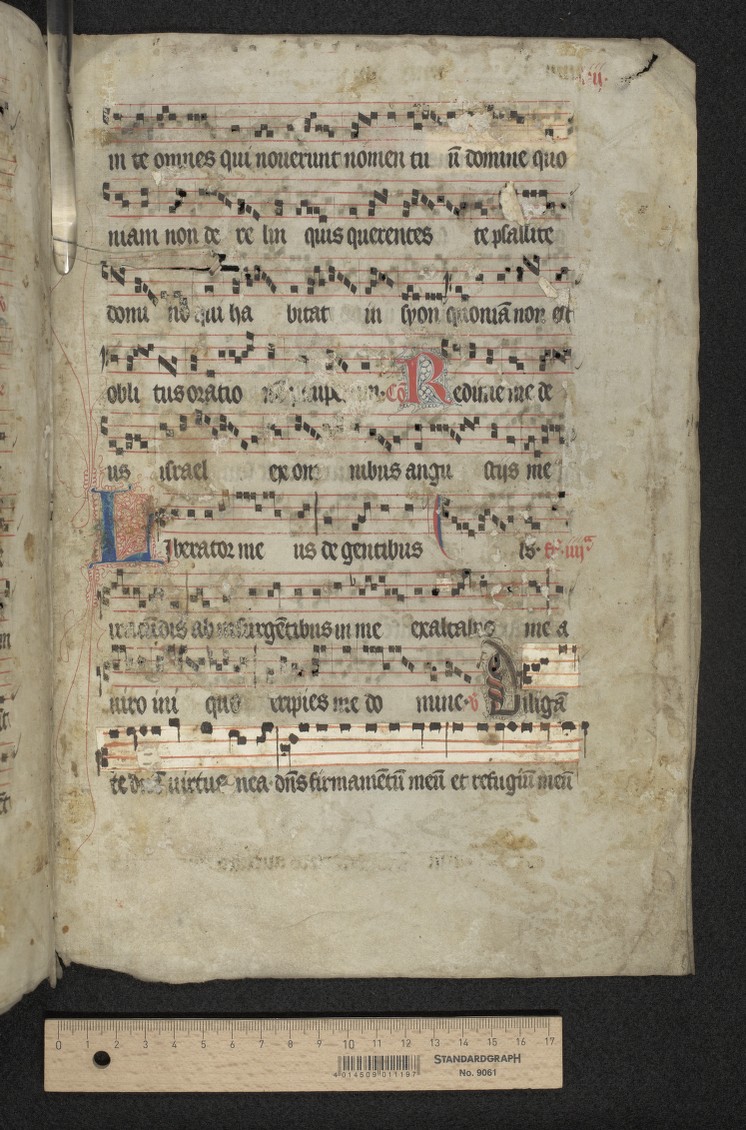 .ii.
in te omnes qui nouerunt nomen tu ū domine quo
niam non de re lin quis querentes te psallite
domi no qui ha bitat in syon quoniā non est
obli tus oratio Cō Redime me de
us israel ex om nibus angu stijs me
Liberator me us de gentibus is. iiijᵃ
iracūdis ab insurgētibus in me exaltabis me a
uiro ini quo eripies me do mine. v Diligā
te dn̄e uirtus mea dn̄s firmamētū meū et refugiū meū
0 1 2 3 4 5 6 7 8 9 10 11 12 13 14 15 16 17
STANDARDGRAPH
4 014509 011197
No. 9061